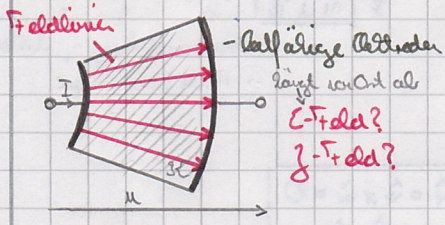 Feldlinien
leitfähige Elektroden
I
hängt von Ort ab
E-Feld?
J-Feld?
ϰ
u